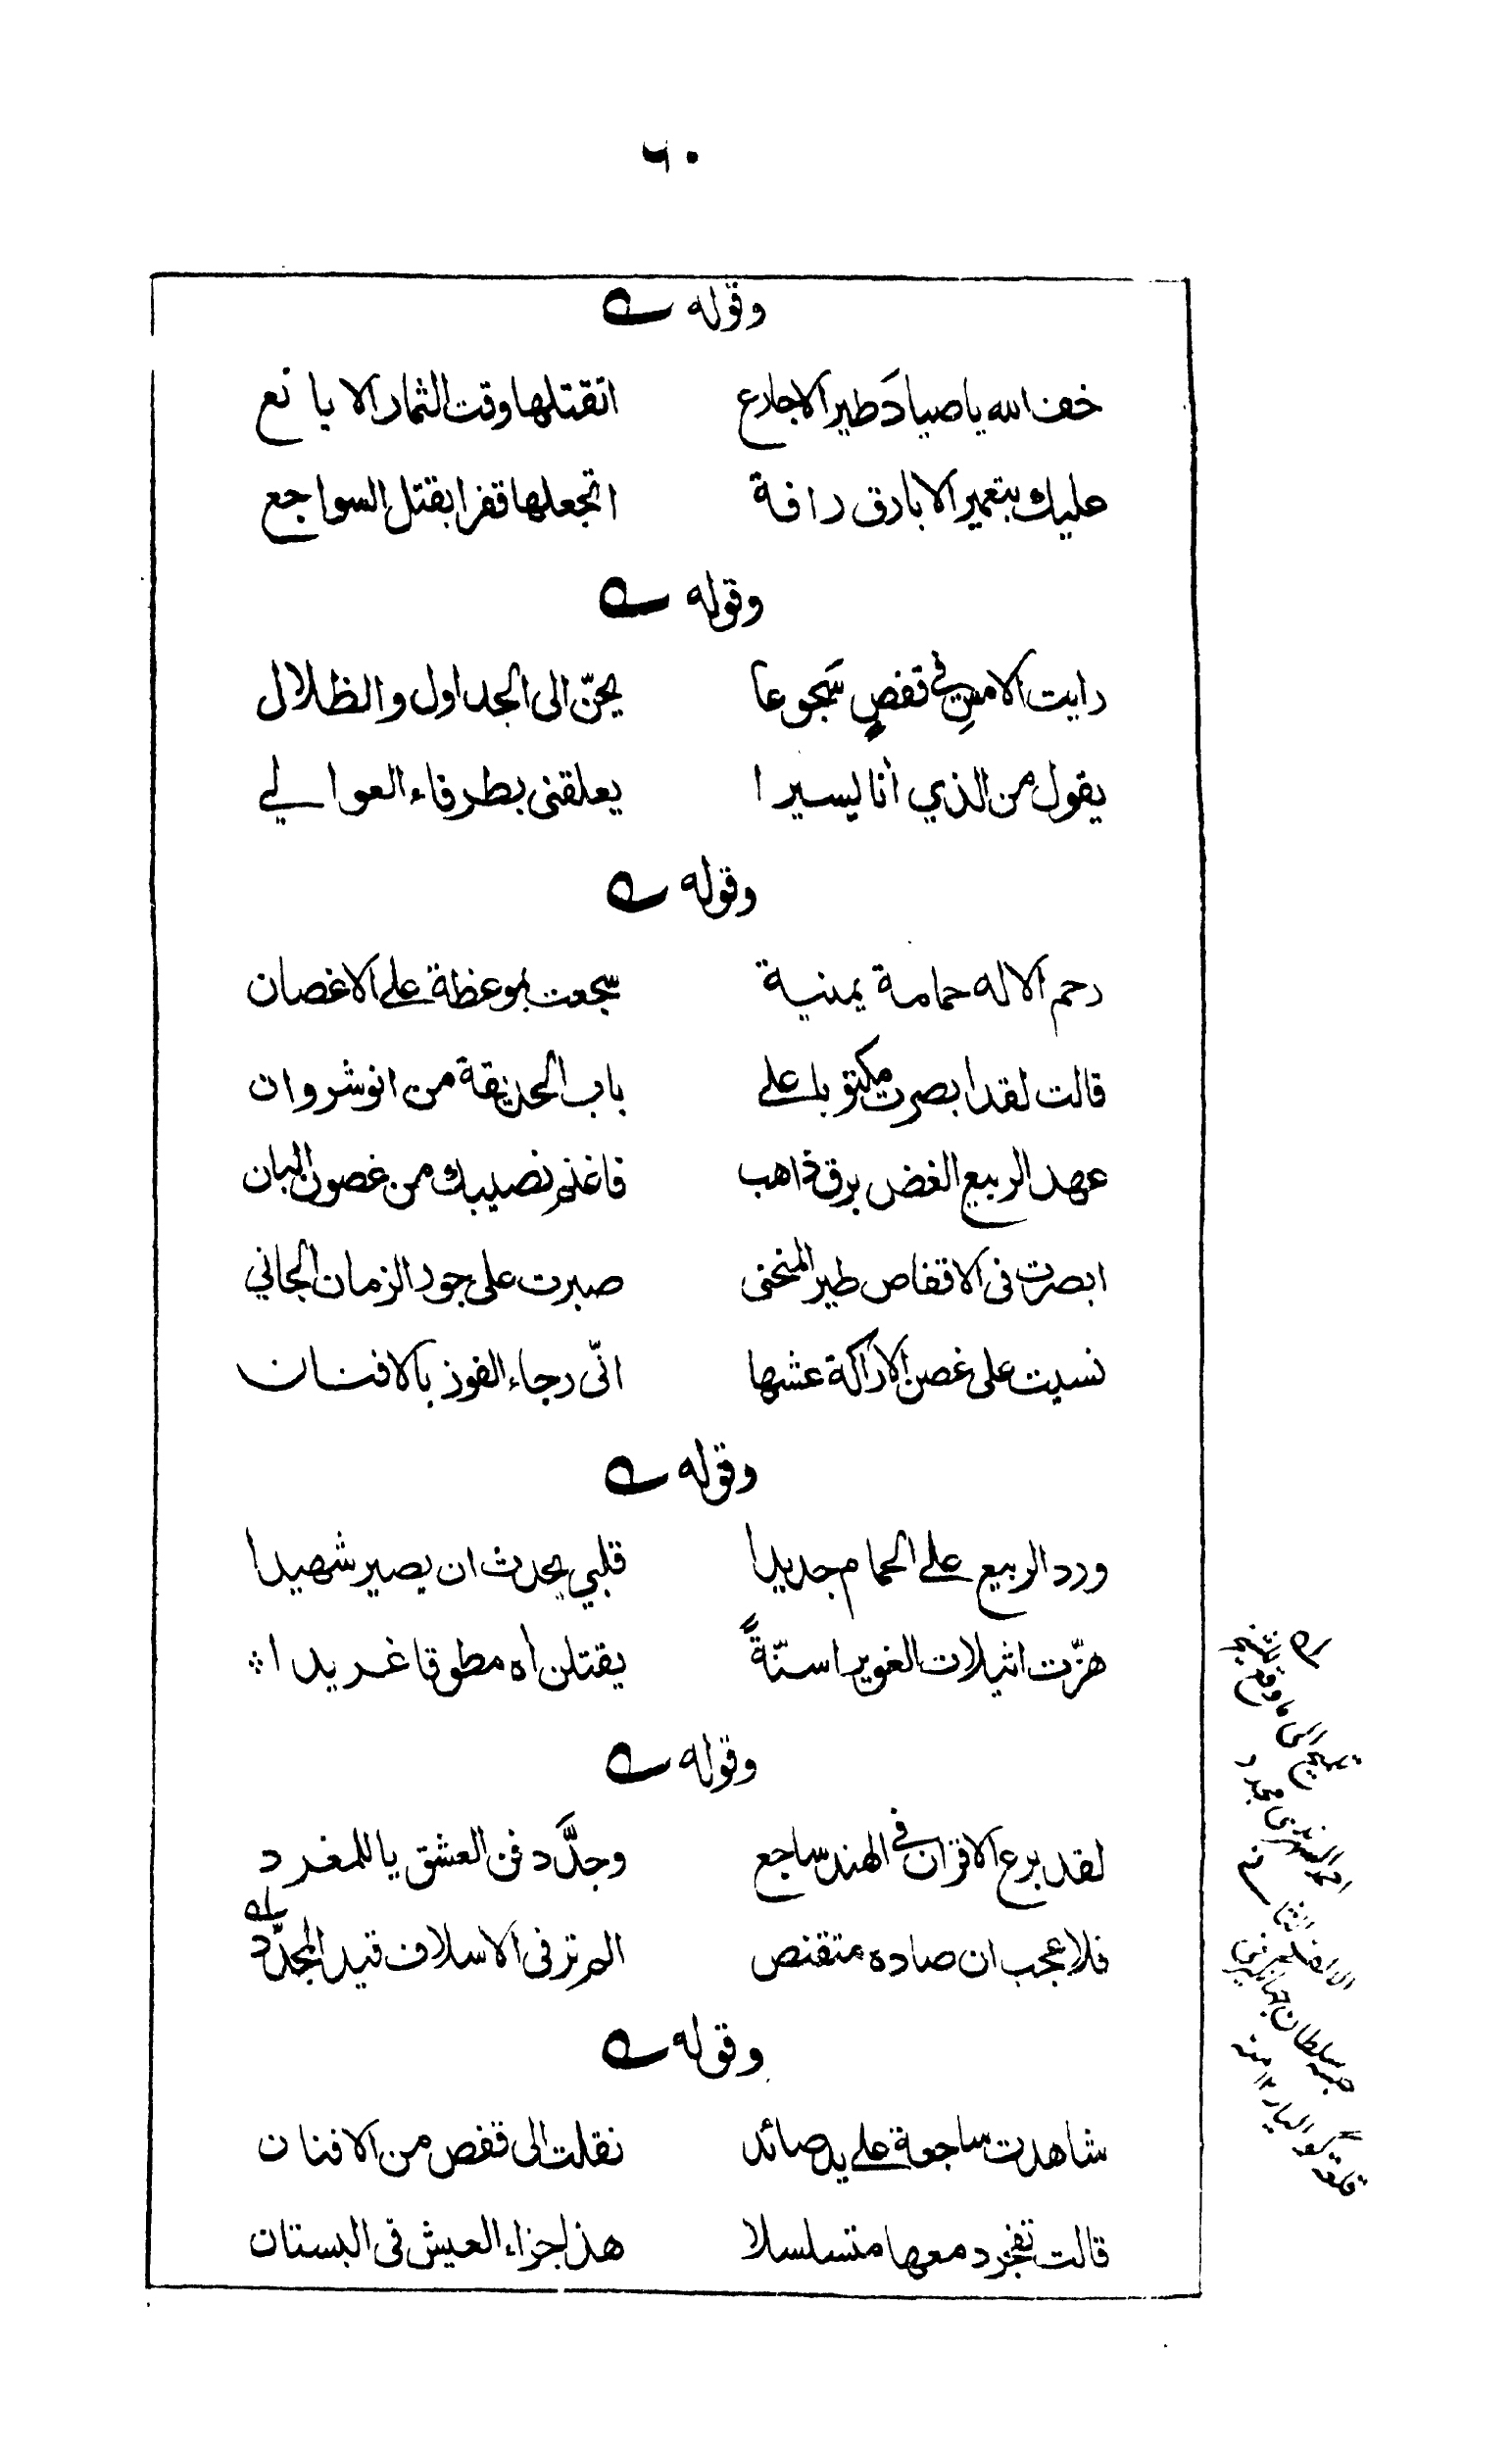 ٦٠
وقوله
خف الله يا صيادَ طير الاجارع    اتقتلها وقت الثمار الايانع
عليك بتعمير الابارق رافة    اتجعلها قفرا بقتل السواجع
وقوله
رايت الامسِ فى قفصٍ سَجوعا    يحنّ الى الجداول والظلال
يقول من الذي انا ليسيرا    يعلقنى بطرفاء العوالي
وقوله
رحم الاله حمامة يمنية    سجعت بموعظة على الاغصان
قالت لقد ابصرت مكتوبا على    باب الحديقة من انوشروان
عهد الربيع الغض برق ذاهب    فاغنم نصيبك من غصون البان
ابصرت فى الاقفاص طير المنحنى    صبرت على جور الزمان الجاني
نسيت على غصن الاراكة عشها    انّى رجاء الفوز بالافنان
وقوله
ورد الربيع على الحمام جديدا    قلبي يحدث ان يصير شهيدا
هزّت اثيلات الغوير اسنّةً    يقتلن اه مطوقا غريدا
وقوله
لقد برع الاقران فى الهند ساجع    وجدَّد فن العشق يا للمغرد
فلا عجب ان صاده متقنص    الم تر فى الاسلاف قيد المجدّد
وقوله
شاهدت ساجعة على يد صائد    نقلت الى قفص من الافنان
قالت تفجر دمعها متسلسلا    هذا جزاء العيش فى البستان
تلميح الى ما وقع للشيخ
احمد السهرندى مجدد
الالف الثانى
حبسه سلطان جهانگير فى
قلعة گواليار ١٢ منه